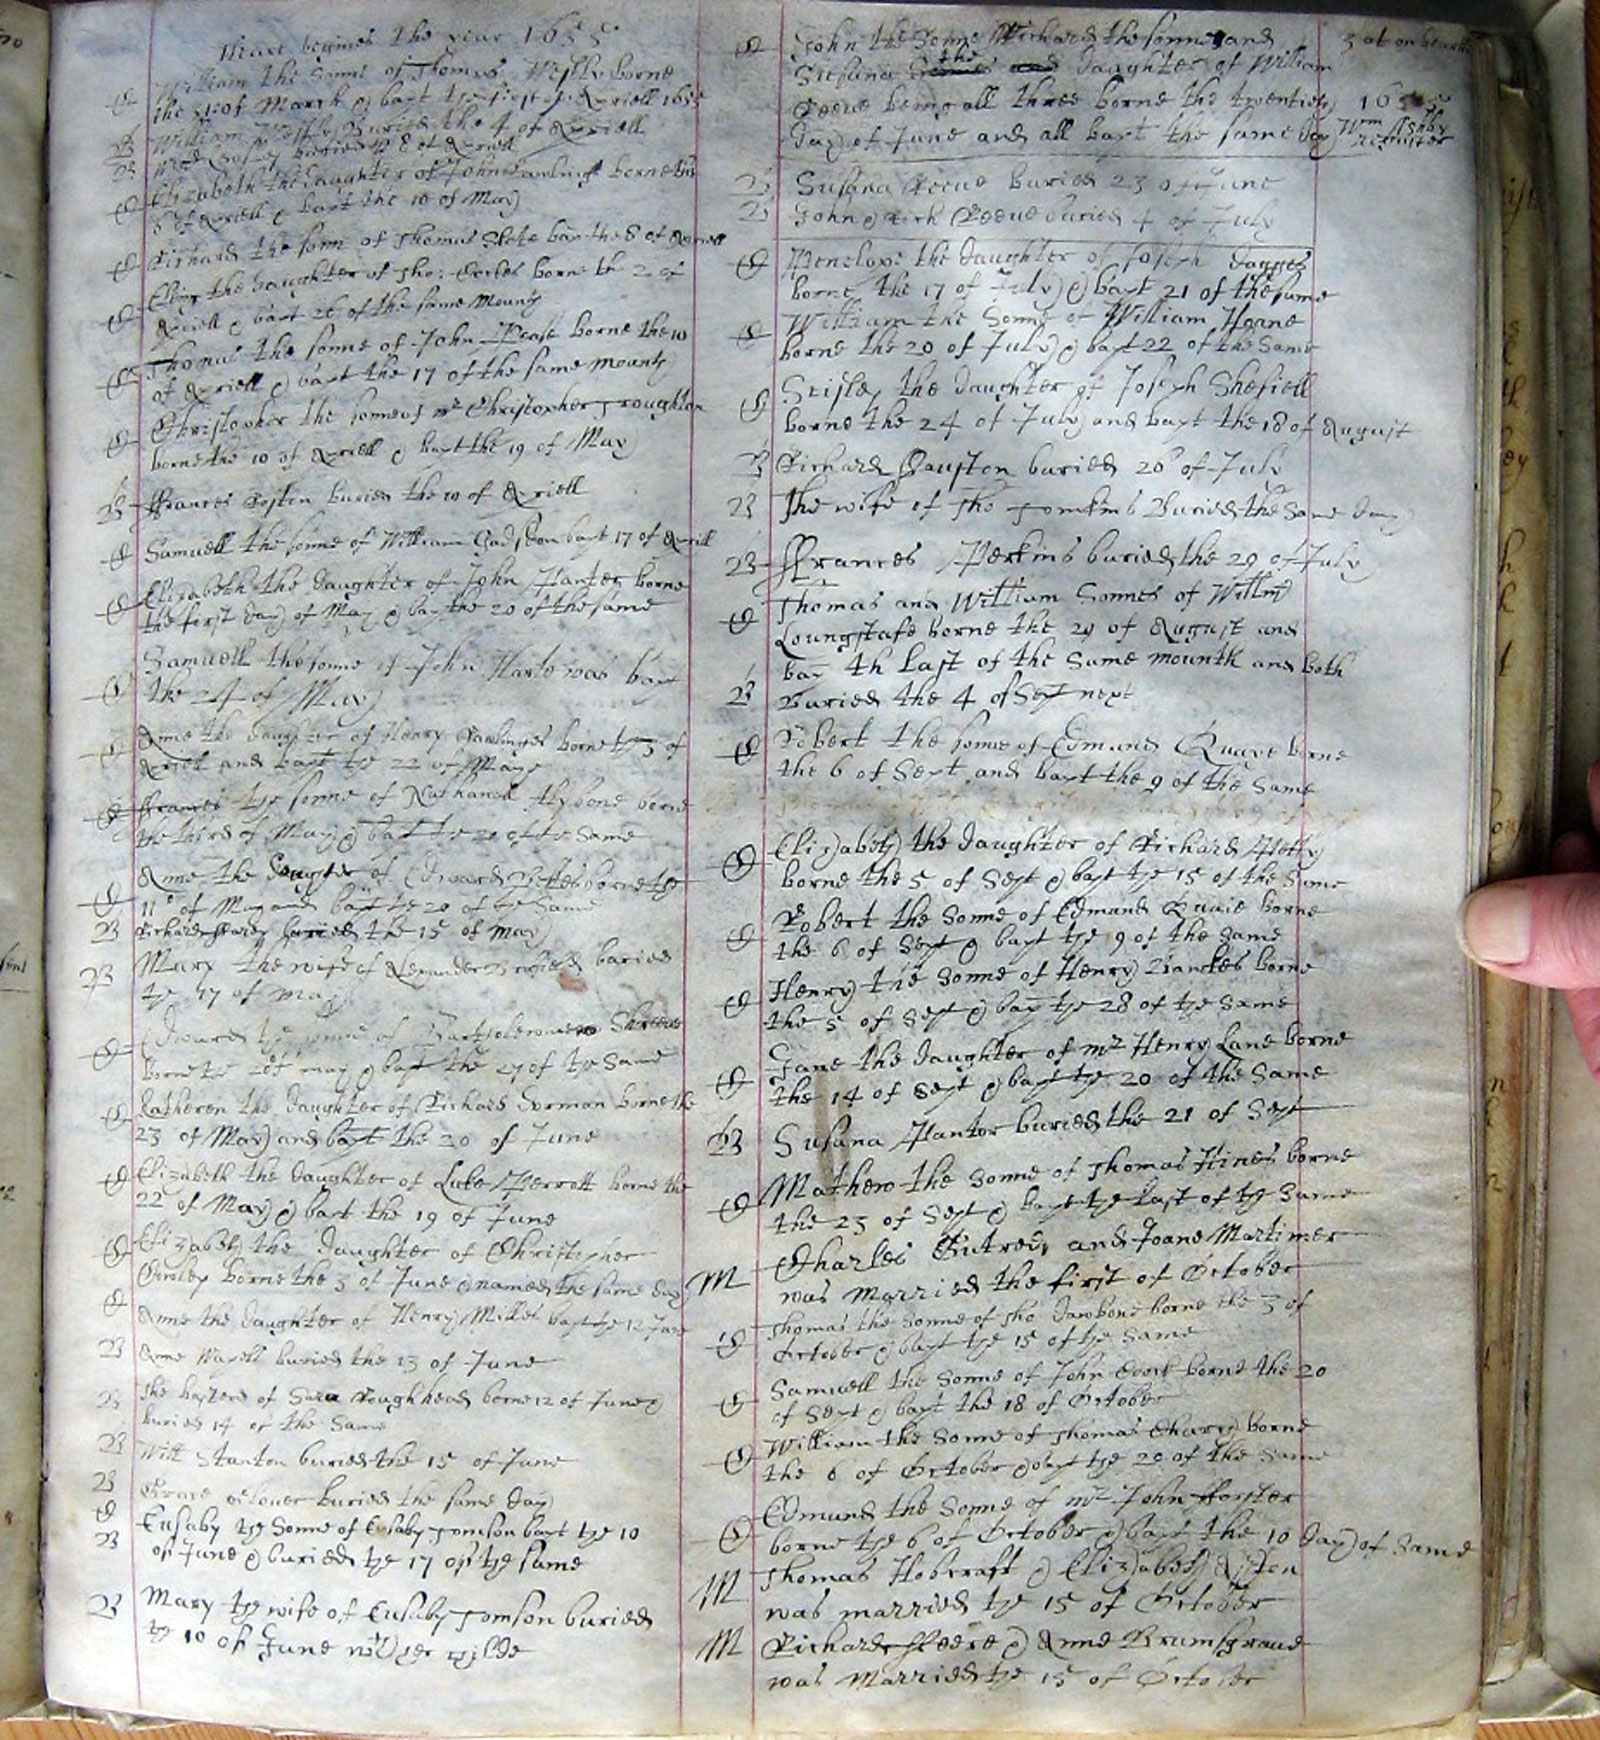 begines the year 1655
William the Sonne of Thomas Westly borne
the 31 of March & bapt the first of Apriell 1655
William Westly Buried the 4 of Apriell
buried the 8 of Apriell
Elizabeth the daughter of John borne the
5 of Apriell & bapt the 10 of May
Richard the sonn of Thomas Slate bap the 8 of Apriell
the daughter of Tho: Eccles borne the 2 of
Apriell & bapt 26 of the same Mounth
Thomas the sonne of John Pease borne the 10
of Apriell & bapt the 17 of the same mounth
Christopher the sonne of mr Christopher Troughton
borne the 10 of Apriell & bapt the 19 of May
B ffrances Coston buried the 10 of Apriell
Samuell the sonne of William Gadsdon bapt 17 of Aprill
Elizabeth the daughter of John Hanter borne
the first day of May & bap the 20 of the same
Samuell the sonne of John Harte was bapt
the 24 of May
Anne the daughter of Henry Rawlinges borne the 3 of
Apriell and bapt the 22 of Maye
ffrances the sonne of Nathaniell borne
the third of May & bapt the 20 of the Same
Anne the daughter of Edward borne the
11 of May and bapt the 20 of the Same
B Richard ffardy buried the 15 of May
B Mary the wife of Alexander buried
the 17 of May
Edward the sonne of Bartholomew
borne the of may & bapt the 27 of the Same
Katheren the daughter of Richard Norman borne the
23 of May and bapt the 20 of June
Elizabeth the daughter of Luke Perrott borne the
22 of May & bapt the 19 of June
Elizabeth the daughter of Christopher
borne the 3 of June & named the same day
Anne the daughter of Henry Milles bapt the 12 June
B Anne Waxell buried the 13 of June
B The basterd of Sara Roughhead borne 12 of June &
buried 14 of the Same
B Will Stanton buried the 15 of June
B Grace Glover buried the same day
Eusaby the Sonne of Eusaby Tomson bapt the 10
B of June & buried the 17 of the same
B Mary the wife of Eusaby Tomson buried
the 10 of June with her childe
John the Sonne Richard the sonne and 3 at on bearth
Susana the daughter of William
Reeve being all three borne the twentieth 1655
day of June and all bapt the same day Wm Ashby
register
B Susana Reeue buried 23 of June
B John & Rich Reeue buried 4 of July
Penelope the daughter of Joseph Dagges
borne the 17 of July & bapt 21 of the same
William the Sonne of William Horne
borne the 20 of July & bapt 22 of the Same
Grisley the daughter of Joseph Shefiell
borne the 24 of July and bapt the 18 of August
B Richard Causton buried 20 of July
B The wife of Tho Tomkins Buried the Same day
B ffrances Perkins buried the 29 of July
Thomas and William Sonnes of Willm
Loungstafe borne the 29 of August and
bap th last of the same mounth and both
B Buried the 4 of Sept next
Robert the sonne of Edmund Quaye borne
the 6 of Sept and bapt the 9 of the Same
Elizabeth the daughter of Richard
borne the 5 of Sept & bapt the 15 of the Same
Robert the Sonne of Edmund Quaie borne
the 6 of Sept & bapt the 9 of the Same
Henry the Sonne of Henry Banckes borne
the 5 of Sept & bap the 28 of the Same
Jane the daughter of mr Henry Lane borne
the 14 of Sept & bapt the 20 of the Same
B Susana Hantor buried the 21 of Sept
Mathew the Sonne of Thomas Hines borne
the 23 of Sept & bapt the last of the Same
Charles Gutredg and Joane Martimer
M was Married the first of October
Thomas the Sonne of Tho borne the 3 of
October & bapt the 15 of the Same
Samuell the Sonne of John borne the 20
of Sept & bapt the 18 of October
William the Sonne of Thomas Charry borne
the 6 of October & bapt the 20 of the Same
Edmund the Sonne of mr John fforster
borne the 6 of October & bapt the 10 day of Same
M Thomas Hobcraft & Elizabeth Aston
was married the 15 of October
M Richard & Anne Brumsgraue
was Married the 15 of October